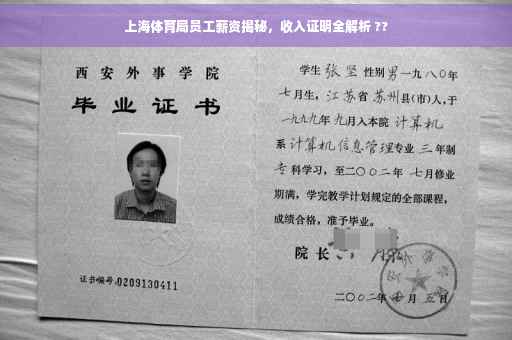 上海体育局员工薪资揭秘，收入证明全解析 ??
西安外事学院
毕业证书
证书编号:0209130411
学生 张坚 性别 男 一九八〇年
七月生，江苏省 苏州县(市)人，于
一九九九年 九月入本院 计算机
系 计算机信息管理专业 三 年制
专 科学习，至二〇〇二年 七月修业
期满，学完教学计划规定的全部课程，
成绩合格，准予毕业。
院长
二〇〇二年 月 五日